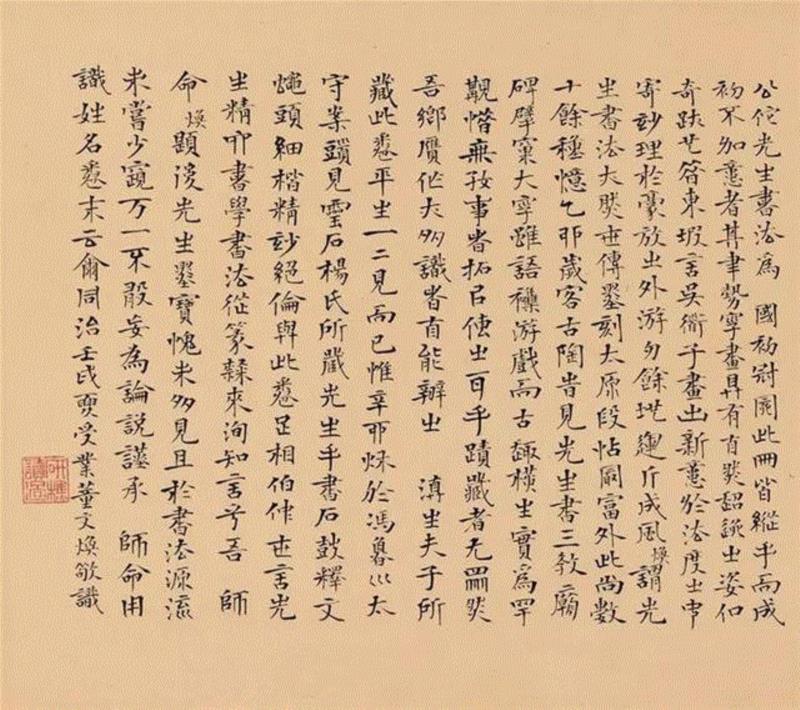 公佗先生書法爲 國初冠此冊皆縱手而成
初不加意者其聿勢寕畫具有自然超詭之姿似
奇東坡言吳衜子畫出新意於法度之中
寄妙理於豪放之外游刃餘地運斤成風煥謂先
生書法大世傳墨刻太原段帖閎富外此尚數
十餘種憶乙卯歲客古陶皆見先生書三敎廟
碑擘窠大寕雖語襍游戲而古趣橫生實爲罕
覯惜無好事者拓以傳之手蹟藏者尤罕然
吾鄉贗作大多識者自能辨之 滇生夫子所
藏此卷平生一二見而已惟辛酉秌於馮魯川太
守案頭見霊石楊氏所藏先生手書石鼓釋文
蠅頭細楷精妙絕倫與此卷足相伯仲世言先
生精卯書學書法從篆隸來洵知言兮吾 師
命煥題後先生墨寶愧未多見且於書法源流
未嘗少窺萬一不敢妄為論說謹承 師命用
識姓名卷末云爾同治壬戌夏受業董文煥敬識